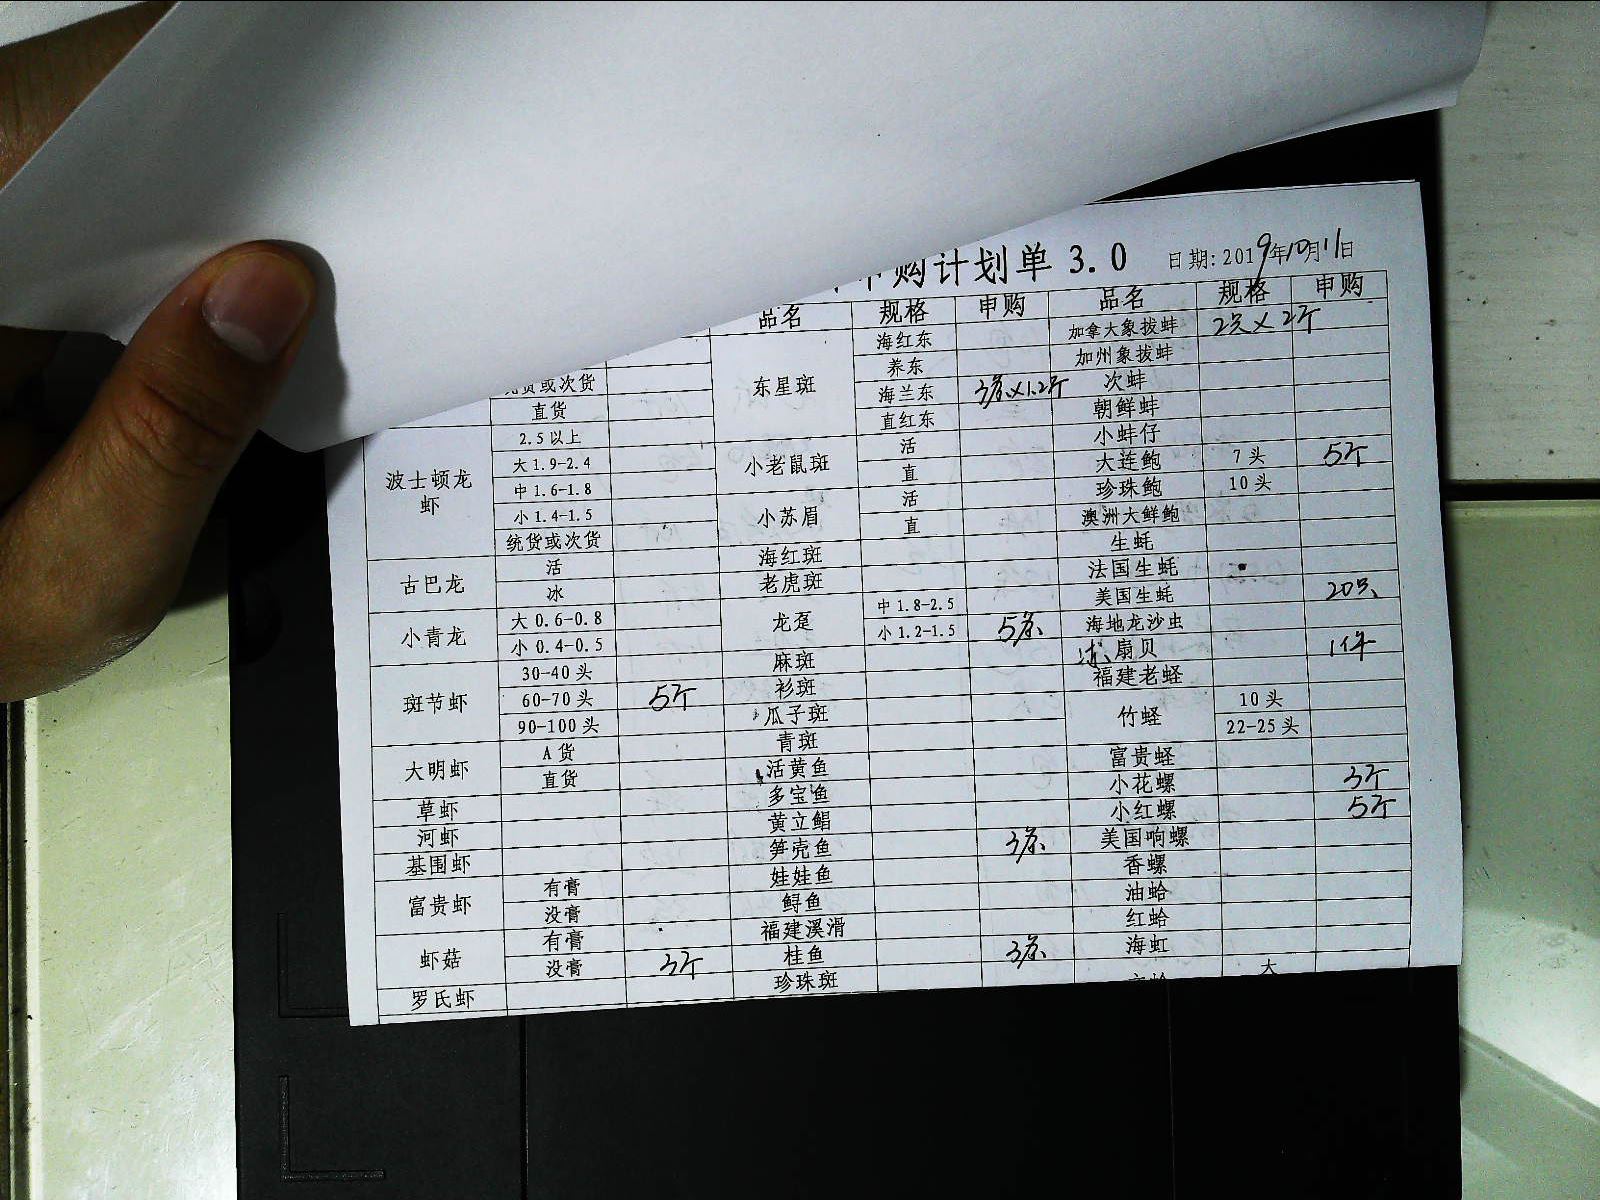 申购计划单 3.0 日期: 2019年10月11日
品名 规格 申购 品名 规格 申购
海红东 加拿大象拔蚌 2只×2斤
养东 加州象拔蚌
或次货 东星斑 海兰东 3条×1.2斤 次蚌
直货 直红东 朝鲜蚌
2.5以上 活 小蚌仔
大1.9-2.4 小老鼠斑 直 大连鲍 7头 5斤
波士顿龙虾 中1.6-1.8 活 珍珠鲍 10头
小1.4-1.5 小苏眉 直 澳洲大鲜鲍
统货或次货 海红斑 生蚝
古巴龙 活 老虎斑 法国生蚝
冰 中1.8-2.5 美国生蚝 20只
小青龙 大0.6-0.8 龙趸 小1.2-1.5 5条 海地龙沙虫
小0.4-0.5 麻斑 扇贝 1件
30-40头 衫斑 福建老蛏
斑节虾 60-70头 5斤 瓜子斑 竹蛏 10头
90-100头 青斑 22-25头
大明虾 A货 活黄鱼 富贵蛏
直货 多宝鱼 小花螺 3斤
草虾 黄立鲳 小红螺 5斤
河虾 笋壳鱼 3条 美国响螺
基围虾 娃娃鱼 香螺
富贵虾 有膏 鲟鱼 油蛤
没膏 福建溪滑 红蛤
虾菇 有膏 桂鱼 3条 海虹
没膏 3斤 珍珠斑 大
罗氏虾